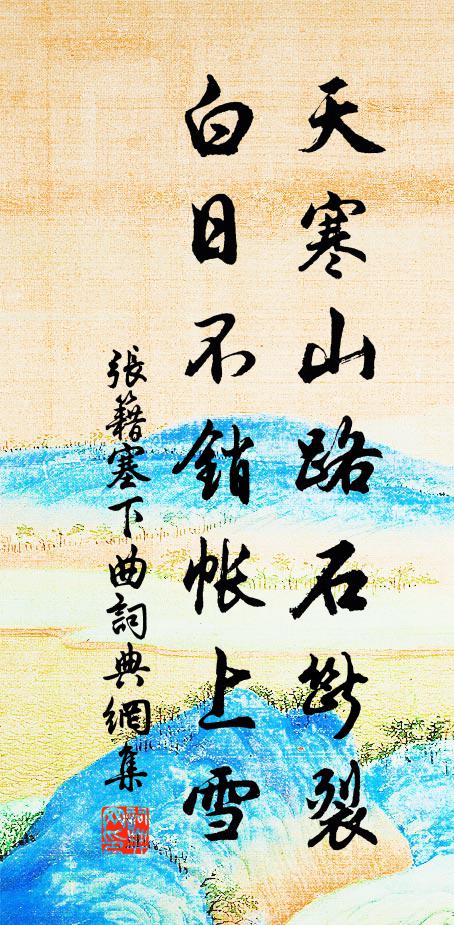 天寒山路石斷裂
白日不銷帳上雪
張籍塞下曲詞典網集